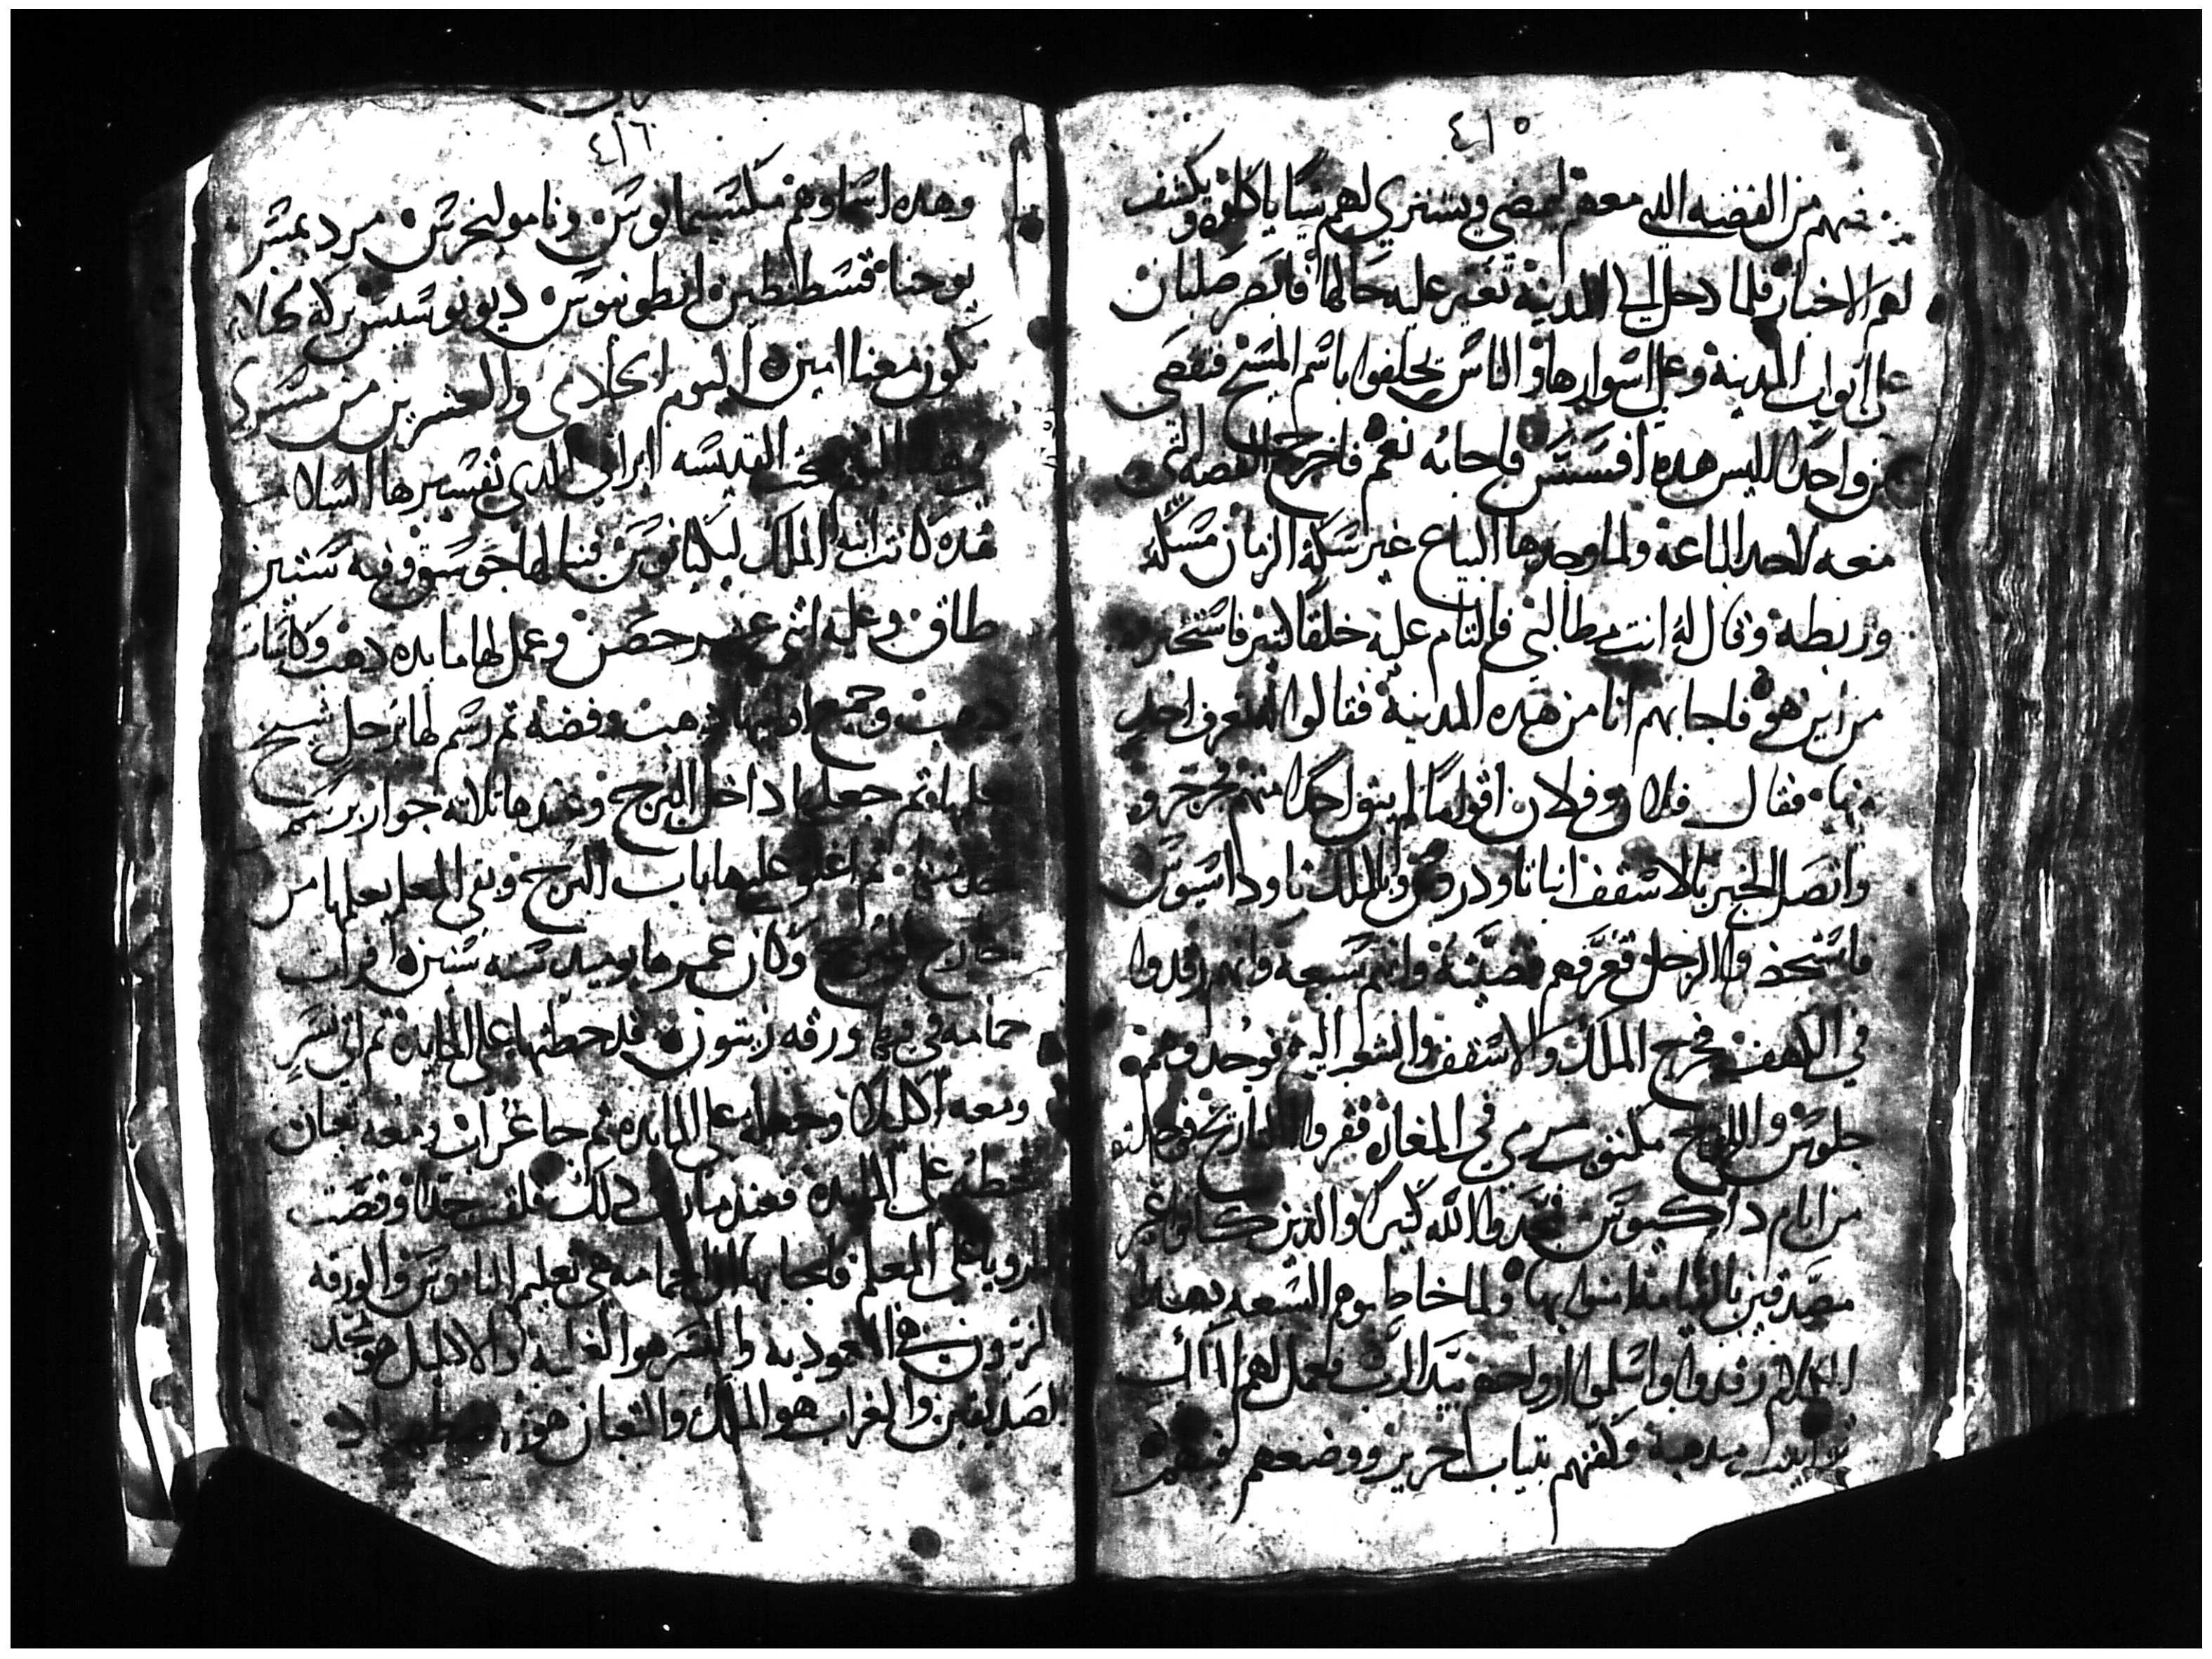 ٤١٥
منهم من الفضه التي معهم ليمضي ويشتري لهم شيا ياكلوه ويكشف
لهم الاخبار فلما دخل الى المدينة تغير عليه حالها فابصر صلبان
على ابواب المدينة وعلى اسوارها والناس يحلفوا باسم المسيح فتقصى
من واحدا اليس هده افسس فاجابه نعم فاخرج الفضه التي
معه لاحد الباعة ولما وجدها البياع غير سكة الزمان مسكه
وربطه وقال له انت مطالبي فالتام عليه خلقا كتير فاستخبر
من اين هو فاجابهم انا من هده المدينة فقالوا لمن تعرف احد
منها فقال فلان وفلان اقواما لم يبق احدا منهم فجرجروه
واتصل الخبر بالاسقف انبا تاودروس وبالملك تاوداسيوس
فاستحضروا الرجل فعرفهم قضيته وانهم سبعة وانهم رقدوا
في الكهف فخرج الملك والاسقف والشعب اليهم فوجدوهم
جلوس واللوح مكتوب مرمي في المغاره فقروا التاريخ فوجدوه
من ايام داكيوس فمجدوا الله كتيرا والدين كانوا غير
مصدقين بالقيامة امنوا بها ولما خاطبوهم السبعه بهدا
الكلام رقدوا واسلموا ارواحهم بيد الرب فعمل لهم الملك
توابيت مدهبة وكفنهم بتياب حرير ووضعهم فيهم
٤١٦
وهده اسماوهم مكسيمانوس ونامولنخوس مرديموس
يوحنا قسطنطين انطونيوس ديونوسيس بركة هولاي
تكون معنا امين اليوم الحادي والعشرين من مسرى
في هدا اليوم تنيحت القديسه ايراني الدي تفسيرها السلامه
هده كانت ابنة الملك ليكيانيوس فبنا لها جوسق وفيه ستين
طاق وعليه اتني عشر حصن وعمل لها مايده دهب وكاسات
دهب وجميع اوانيها دهب وفضه تم رسم لها رجل شيخ
يعلمها تم جعلها داخل البرج وعندها تلاته جوار برسم
خدمتها تم اغلق عليها باب البرج وبقى المعلم يعلمها من
خارج البرج وكان عمرها يوميد سته سنين فرات
حمامه في فمها ورقه زيتون فحطتها على المايدة تم اتى نسر
ومعه اكليلا وجعله على المايده تم جا غراب ومعه تعبان
فحطه على المايده فعندما رات دلك قلقت جدا وقصت
الرويا على المعلم فاجابها ان الحمامه هي تعليم الناموس والورقه
الزيتون هي المعموديه والنسر هو الغلبة والاكليل هو مجد
الصديقين والغراب هو الملك والتعبان هو اضطهاد